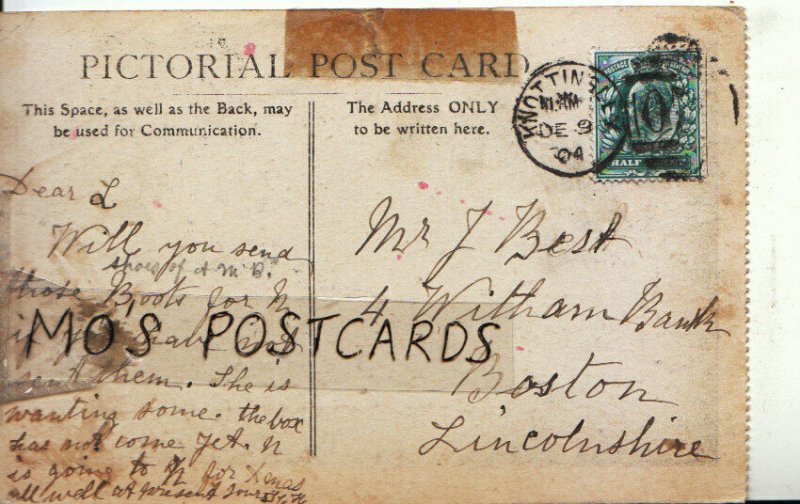 PICTORIAL POST CARD
This Space, as well as the Back, may
be used for Communication.
The Address ONLY
to be written here.
KNOTTINGLEY
DE 9
04
HALF
Dear L
Will you send
those Boots for N
if you have not
sent them. She is
wanting some. the box
has not come yet. N
is going to H for Xmas
all well at present
Mr J Best
4 Witham Bank
Boston
Lincolnshire
MO'S POSTCARDS